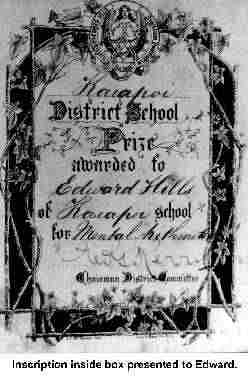 Kaiapoi
District School
Prize
awarded to
Edward Hills
of Kaiapoi school
for Mental Arithmetic
Chairman District Committee
Inscription inside box presented to Edward.